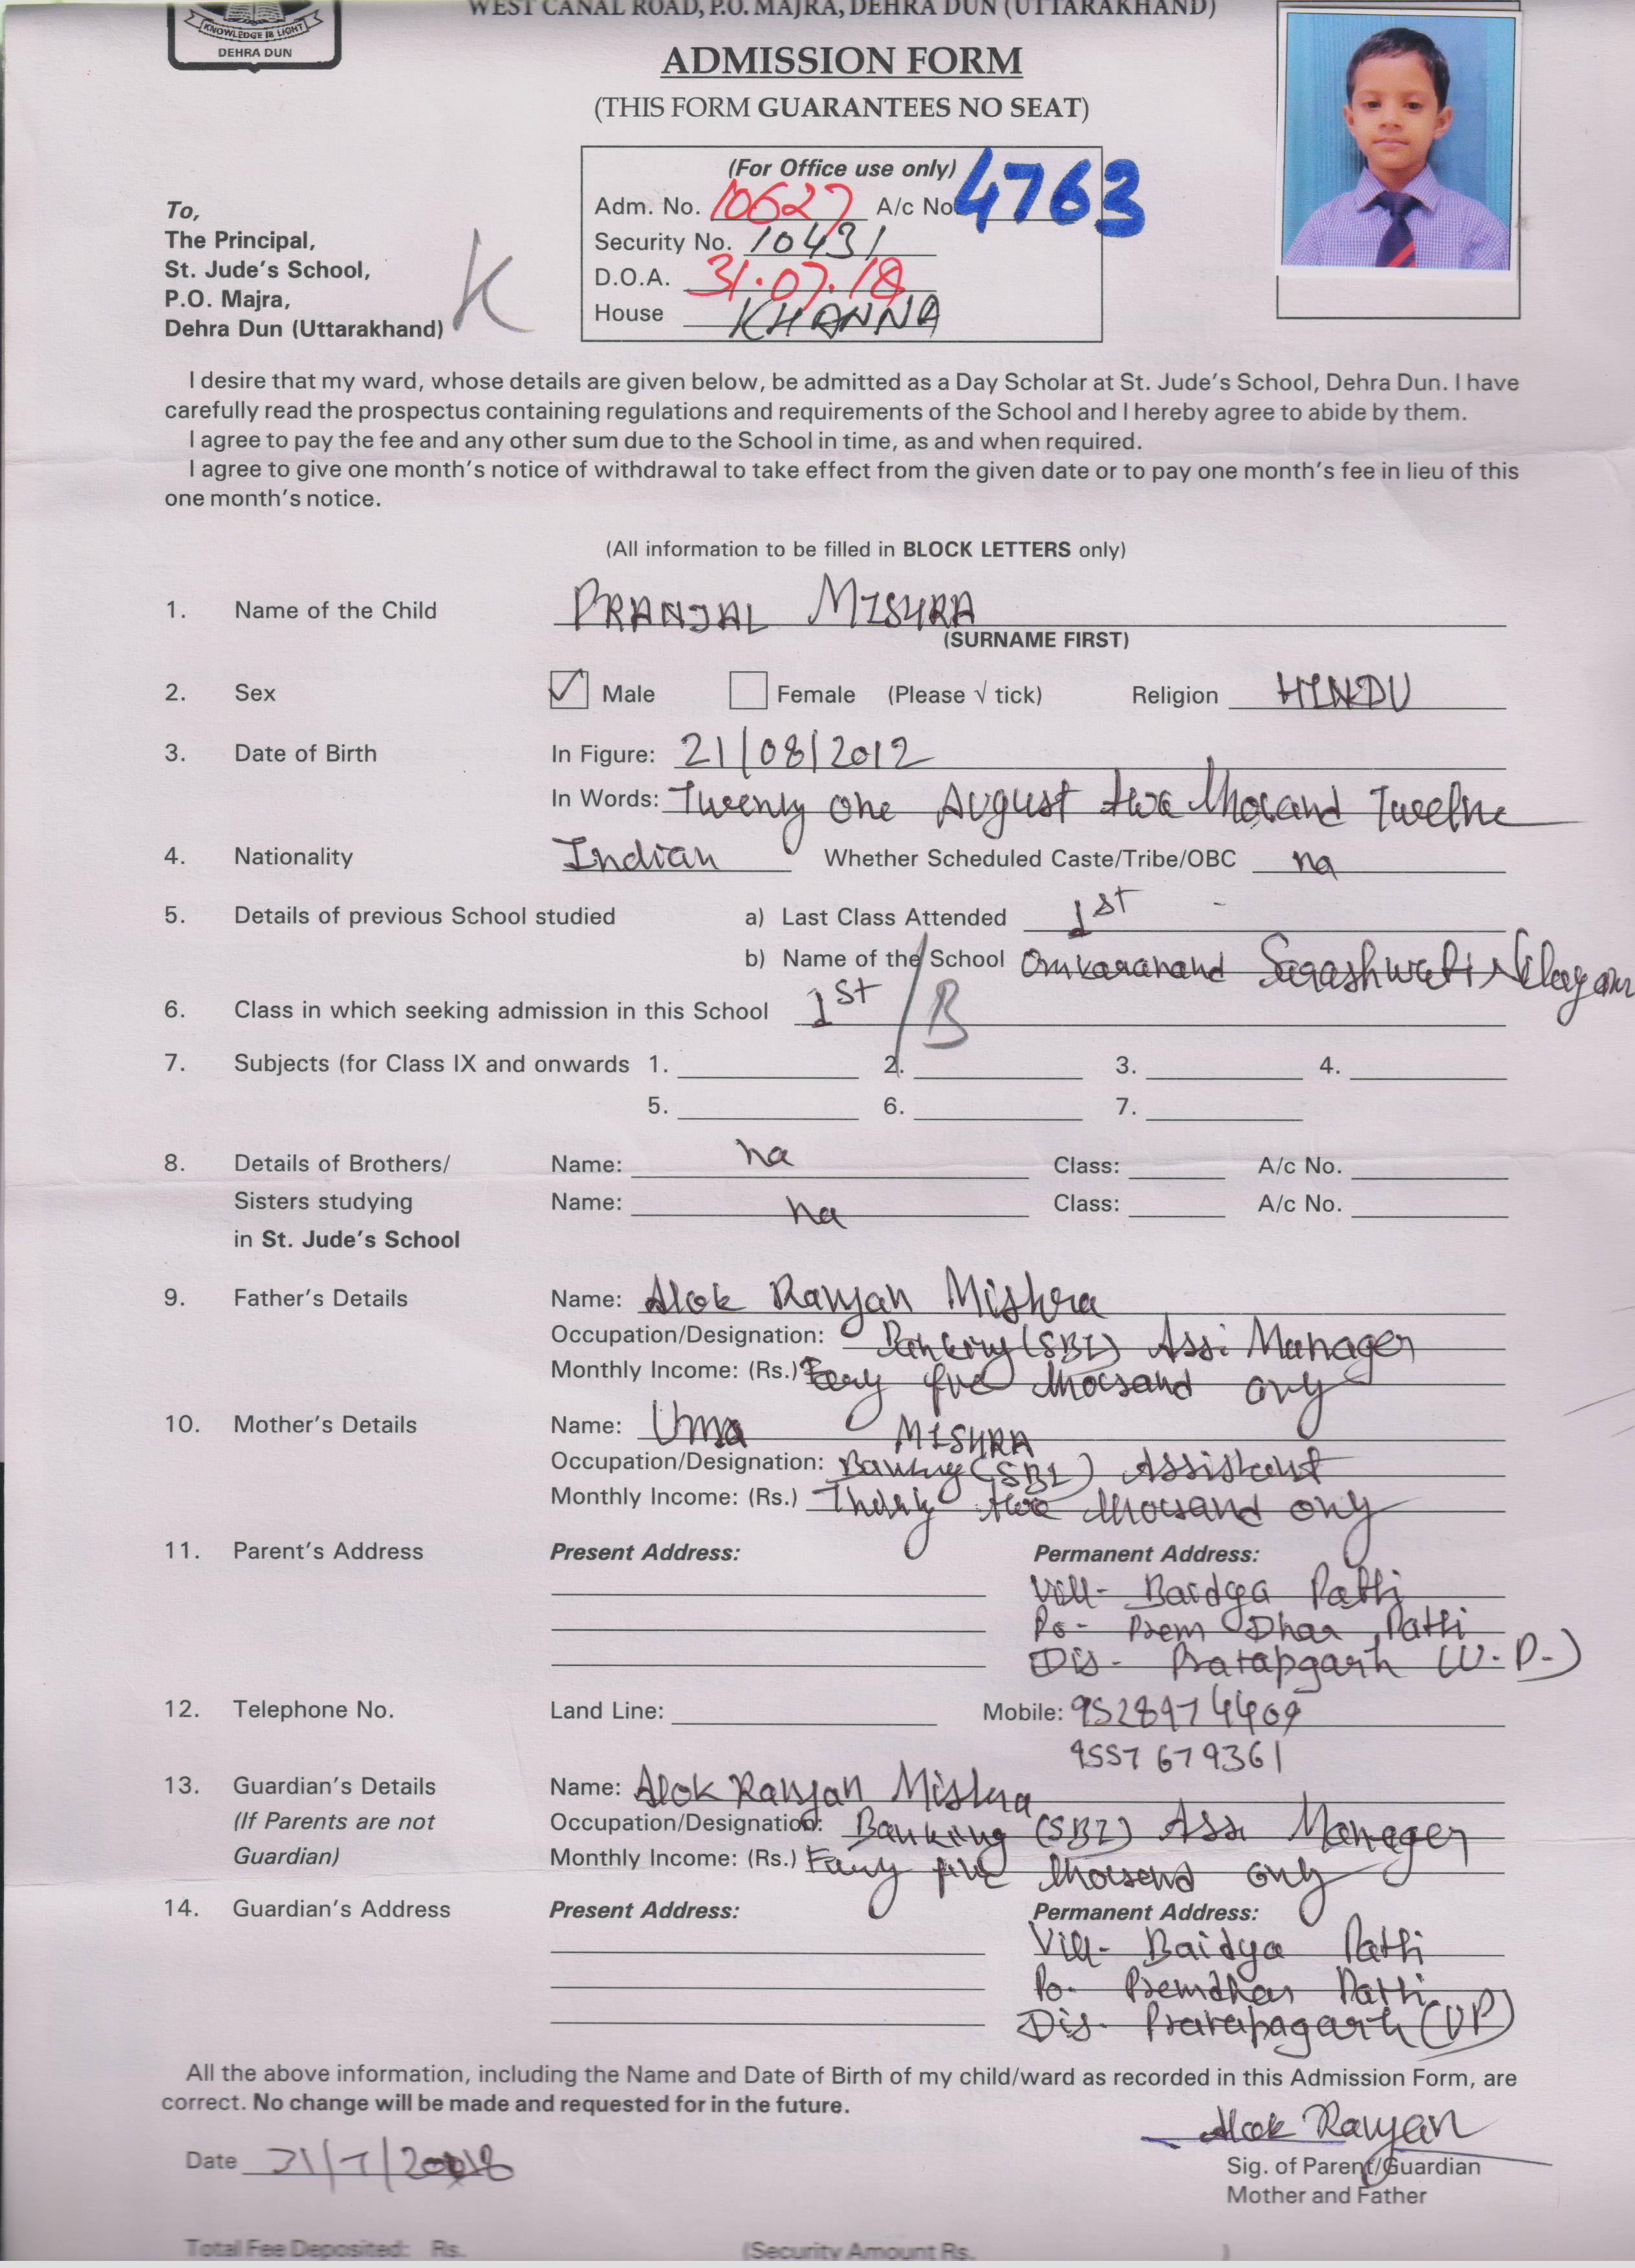 WEST CANAL ROAD, P.O. MAJRA, DEHRA DUN (UTTARAKHAND)
KNOWLEDGE IS LIGHT
DEHRA DUN
ADMISSION FORM
(THIS FORM GUARANTEES NO SEAT)
(For Office use only)
Adm. No. 10627 A/c No 4763
Security No. 10431
D.O.A. 31.07.18
House KHANNA
To,
The Principal,
St. Jude's School,
P.O. Majra,
Dehra Dun (Uttarakhand)
K
I desire that my ward, whose details are given below, be admitted as a Day Scholar at St. Jude's School, Dehra Dun. I have
carefully read the prospectus containing regulations and requirements of the School and I hereby agree to abide by them.
I agree to pay the fee and any other sum due to the School in time, as and when required.
I agree to give one month's notice of withdrawal to take effect from the given date or to pay one month's fee in lieu of this
one month's notice.
(All information to be filled in BLOCK LETTERS only)
1. Name of the Child PRANJAL MISHRA
(SURNAME FIRST)
2. Sex Male Female (Please √ tick) Religion HINDU
3. Date of Birth In Figure: 21/08/2012
In Words: Twenty one August two thousand Twelve
4. Nationality Indian Whether Scheduled Caste/Tribe/OBC na
5. Details of previous School studied a) Last Class Attended 1st
b) Name of the School Omkaranand Sarashwati
6. Class in which seeking admission in this School 1st / B
7. Subjects (for Class IX and onwards 1. 2. 3. 4.
5. 6. 7.
8. Details of Brothers/ Name: na Class: A/c No.
Sisters studying Name: na Class: A/c No.
in St. Jude's School
9. Father's Details Name: Alok Ranjan Mishra
Occupation/Designation: Banking (SBI) Assi Manager
Monthly Income: (Rs.) five thousand ony
10. Mother's Details Name: Uma MISHRA
Occupation/Designation: Banking (SBI) Assistant
Monthly Income: (Rs.) Thirty two thousand ony
11. Parent's Address Present Address: Permanent Address:
Vill- Baidya Patti
Po- Prem Dhar Patti
Dis- Pratapgarh (U.P.)
12. Telephone No. Land Line: Mobile: 9528974409
9557679361
13. Guardian's Details Name: Alok Ranjan Mishra
(If Parents are not Occupation/Designation: Banking (SBI) Assi Maneger
Guardian) Monthly Income: (Rs.) five thousend ony
14. Guardian's Address Present Address: Permanent Address:
Vill- Baidya Patti
Po- Premdhar Patti
Dis- Pratapagarh (UP)
All the above information, including the Name and Date of Birth of my child/ward as recorded in this Admission Form, are
correct. No change will be made and requested for in the future.
Alok Ranjan
Date 31/7/2018
Sig. of Parent/Guardian
Mother and Father
Total Fee Deposited: Rs. (Security Amount Rs. )